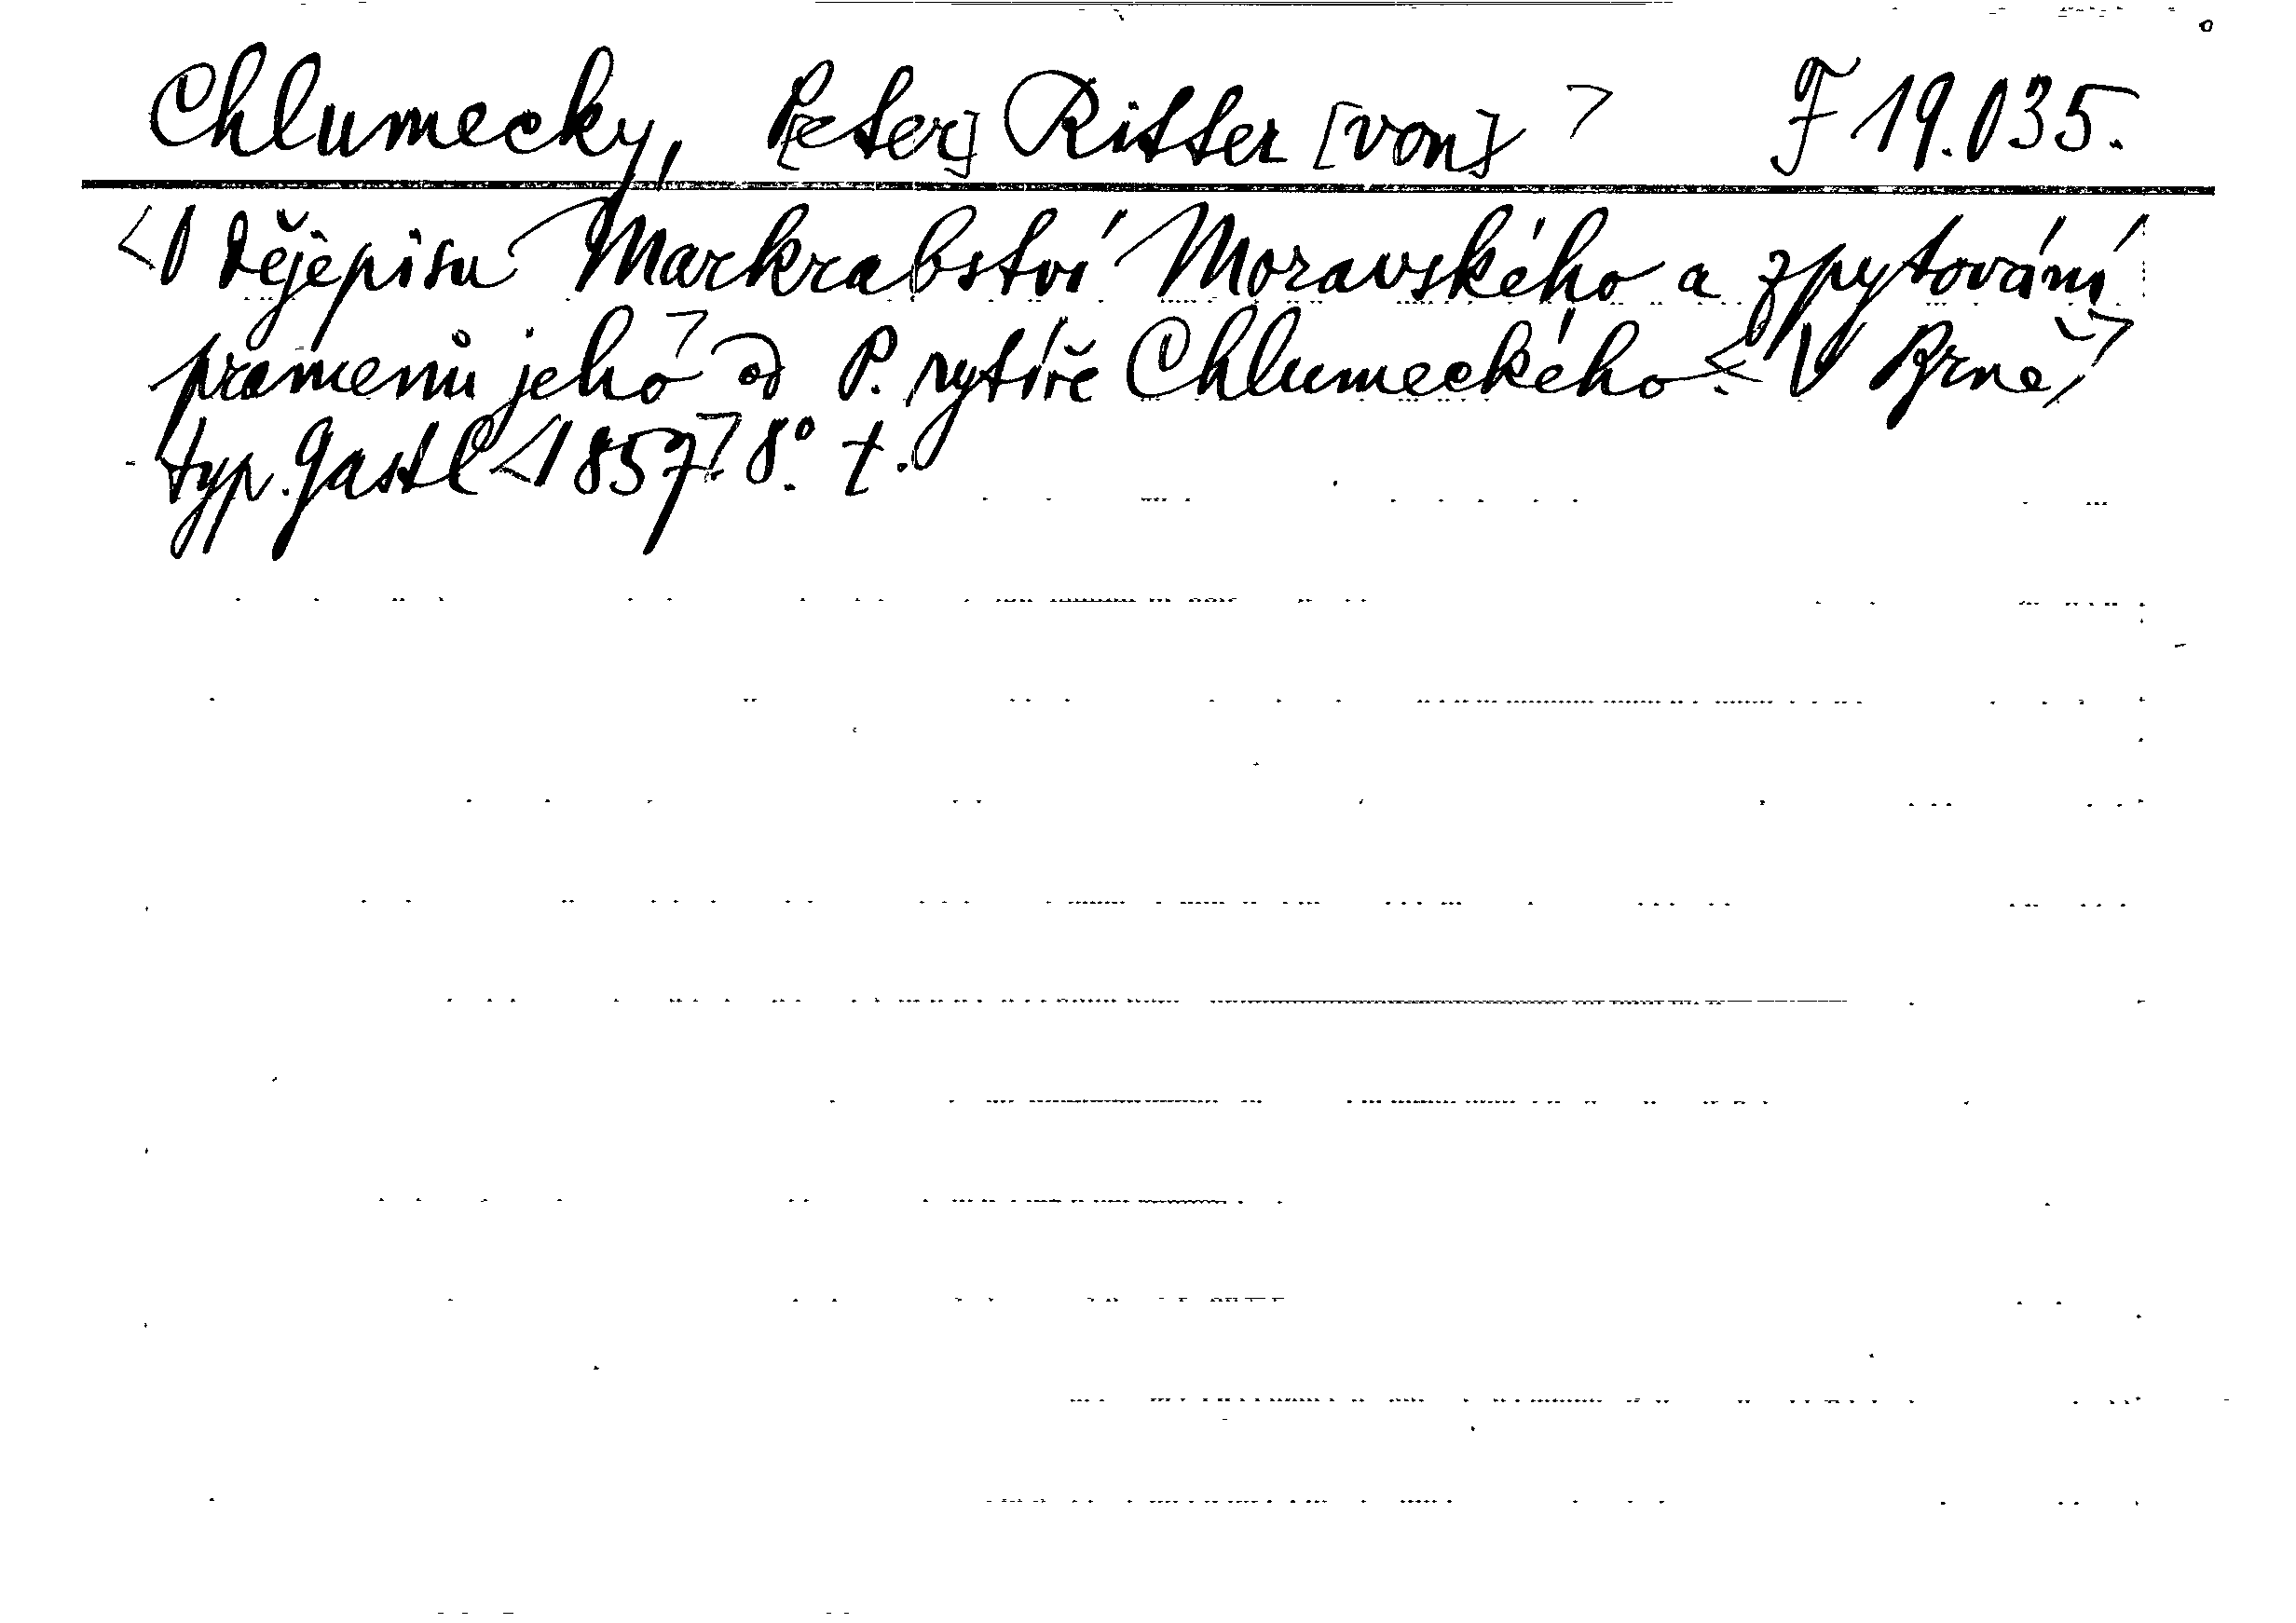 Chlumecky, P[eter] Ritter [von] > F 19.035.
<O dějepisu Markrabství Moravského a zpytování
pramenů jeho> od P. rytíře Chlumeckého. <V Brně,>
typ. Gastl <1857> 8.° t.